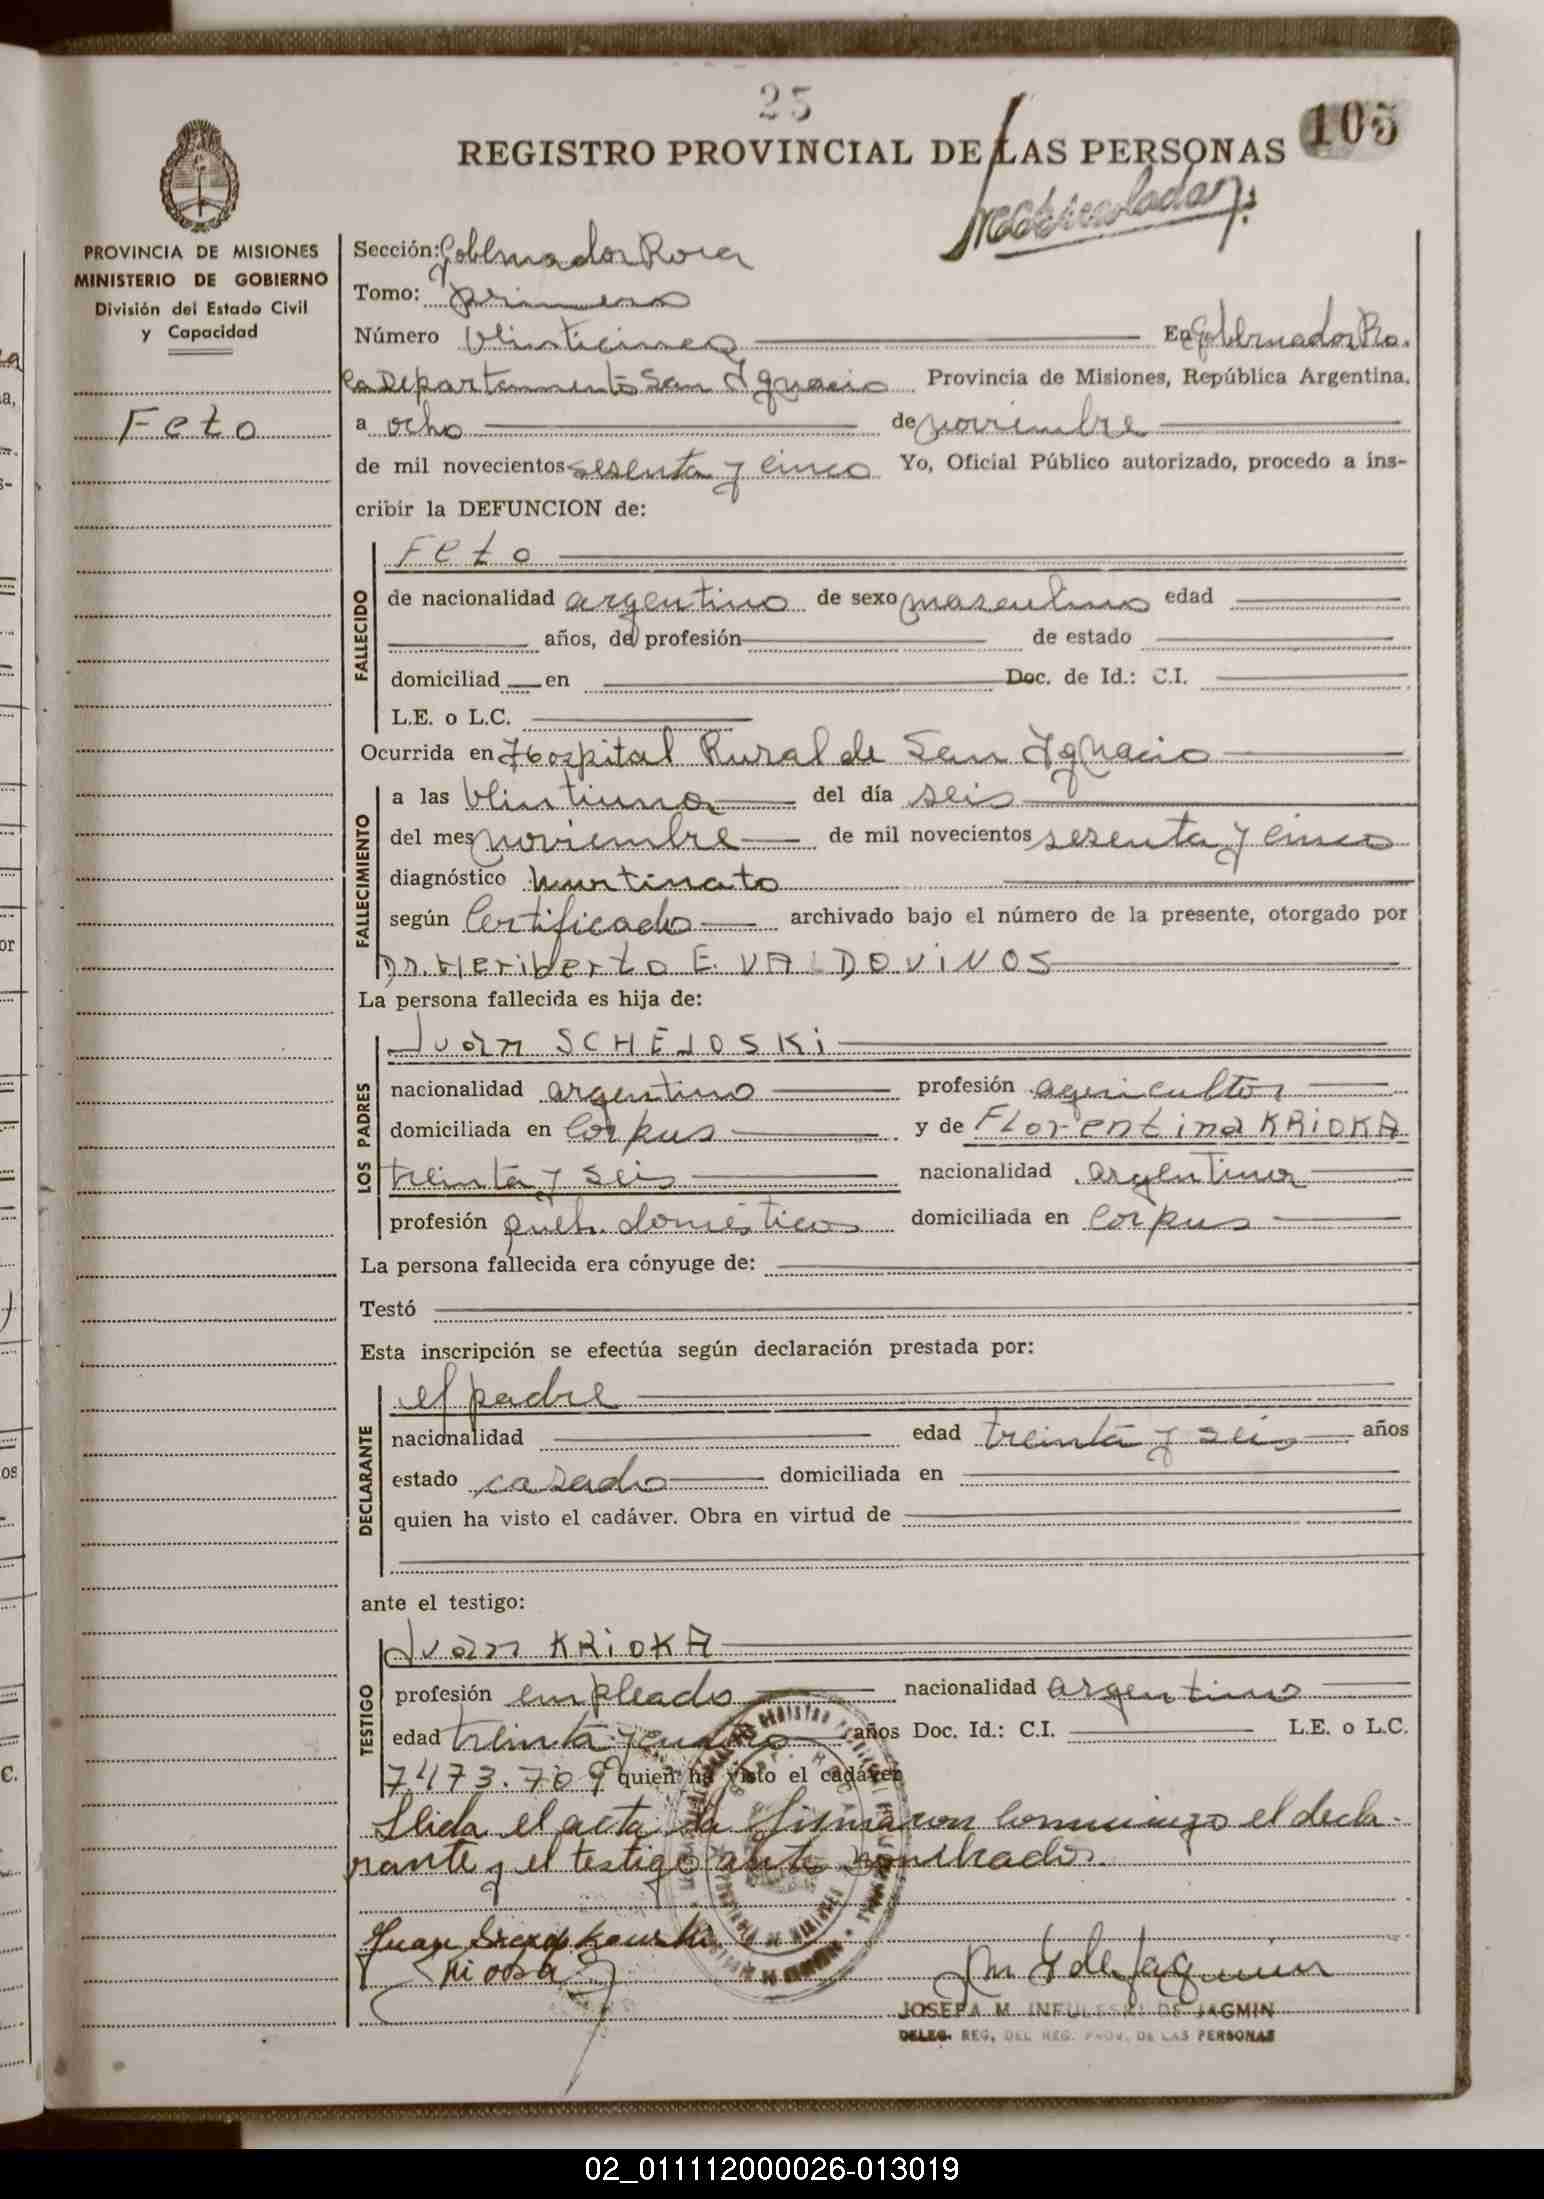 25
105
REGISTRO PROVINCIAL DE LAS PERSONAS
PROVINCIA DE MISIONES
MINISTERIO DE GOBIERNO
División del Estado Civil
y Capacidad
Feto
Sección: Gobernador Roca
Tomo: primero
Número veinticinco En Gobernador Ro-
ca Departamento San Ignacio Provincia de Misiones, República Argentina,
a ocho de noviembre
de mil novecientos sesenta y cinco Yo, Oficial Público autorizado, procedo a ins-
cribir la DEFUNCION de:
FALLECIDO
Feto
de nacionalidad argentino de sexo masculino edad
años, de profesión de estado
domiciliad en Doc. de Id.: C.I.
L.E. o L.C.
Ocurrida en Hospital Rural de San Ignacio
FALLECIMIENTO
a las veintiuna del día seis
del mes noviembre de mil novecientos sesenta y cinco
diagnóstico murtinato
según Certificado archivado bajo el número de la presente, otorgado por
Dr. Heriberto E. VALDOVINOS
La persona fallecida es hija de:
LOS PADRES
Juan SCHEJOSKI
nacionalidad argentino profesión agricultor
domiciliada en Corpus y de Florentina KRIOKA
treinta y seis nacionalidad argentina
profesión queh. domésticos domiciliada en Corpus
La persona fallecida era cónyuge de:
Testó
Esta inscripción se efectúa según declaración prestada por:
DECLARANTE
el padre
nacionalidad edad treinta y seis años
estado casado domiciliada en
quien ha visto el cadáver. Obra en virtud de
ante el testigo:
TESTIGO
Juan KRIOKA
profesión empleado nacionalidad argentino
edad treinta y cuatro años Doc. Id.: C.I. L.E. o L.C.
7.473.709 quien ha visto el cadáver
Leida el acta la firmaron conmigo el decla-
rante y el testigo ante nombrados.
Juan
JOSEFA M. INFULESKI DE JAGMIN
DELEG. REG. DEL REG. PROV. DE LAS PERSONAS
02_011112000026-013019